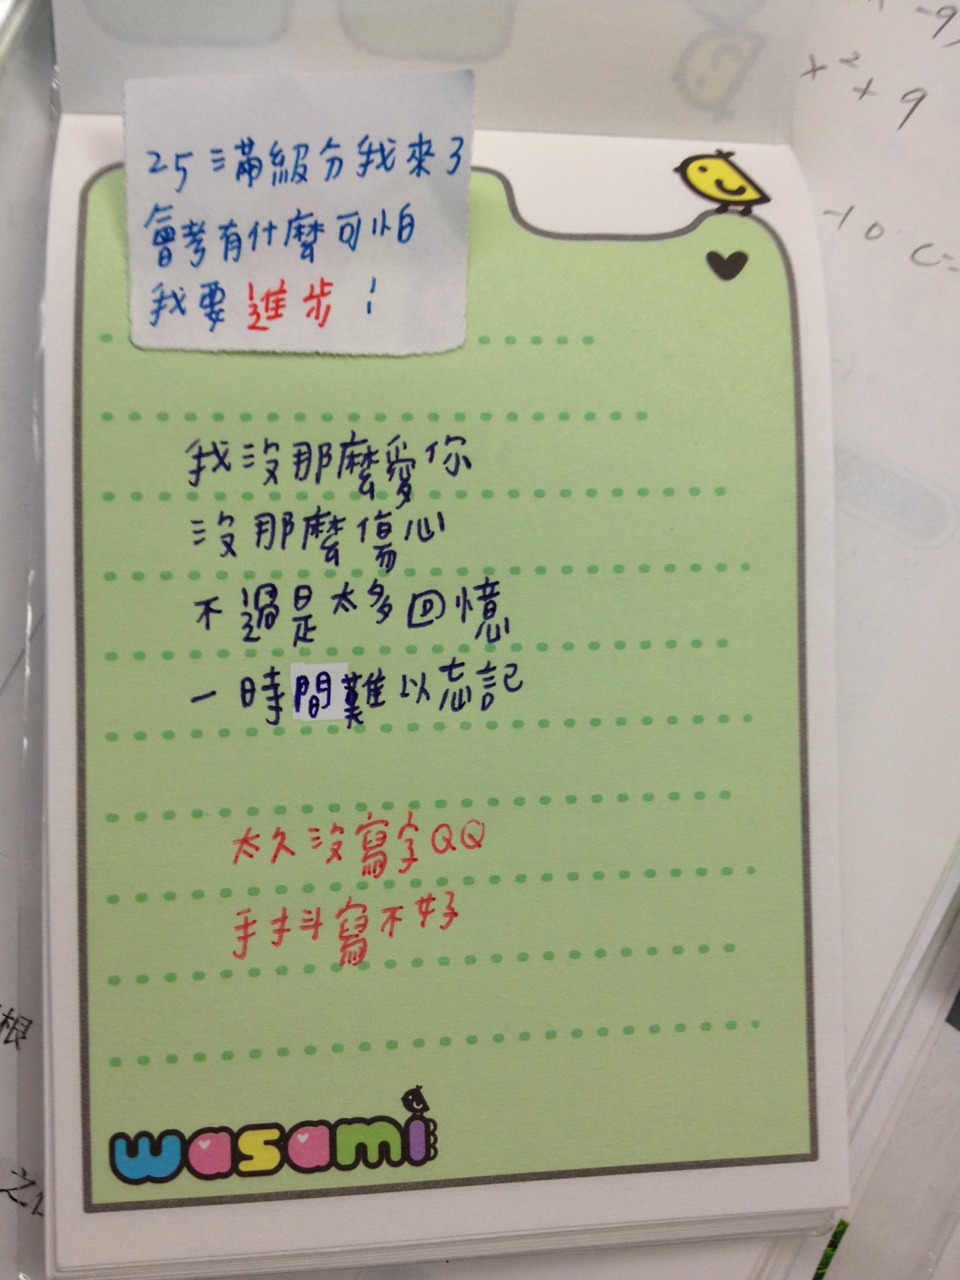 25滿級分我來了
會考有什麼可怕
我要進步！
我沒那麼愛你
沒那麼傷心
不過是太多回憶
一時間難以忘記
太久沒寫字QQ
手抖寫不好
wasami
x²+9
-10
根
之